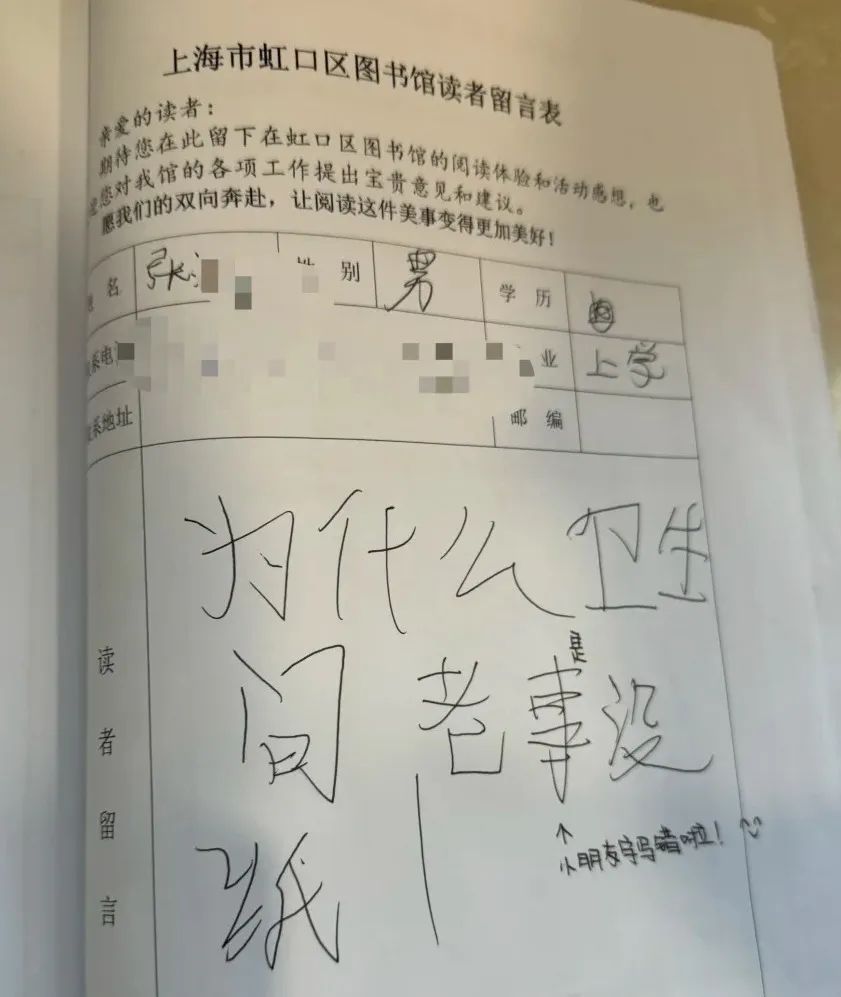 上海市虹口区图书馆读者留言表
亲爱的读者：
期待您在此留下在虹口区图书馆的阅读体验和活动感想，也
您对我馆的各项工作提出宝贵意见和建议。
愿我们的双向奔赴，让阅读这件美事变得更加美好！
名 张 性 别 男 学 历
系电 业 上学
系地址 邮 编
读者留言
为什么卫生
间老事没
是
纸
↑
小朋友字写错啦！